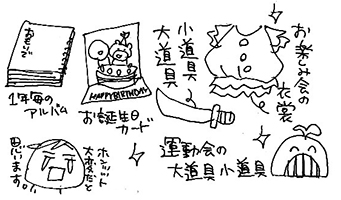 おもいで
1年毎の
アルバム
HAPPY BIRTHDAY
お誕生日
カード
小道具
大道具
お楽しみ会の
衣裳
ホンット
大変だと
思います。
運動会の
大道具小道具